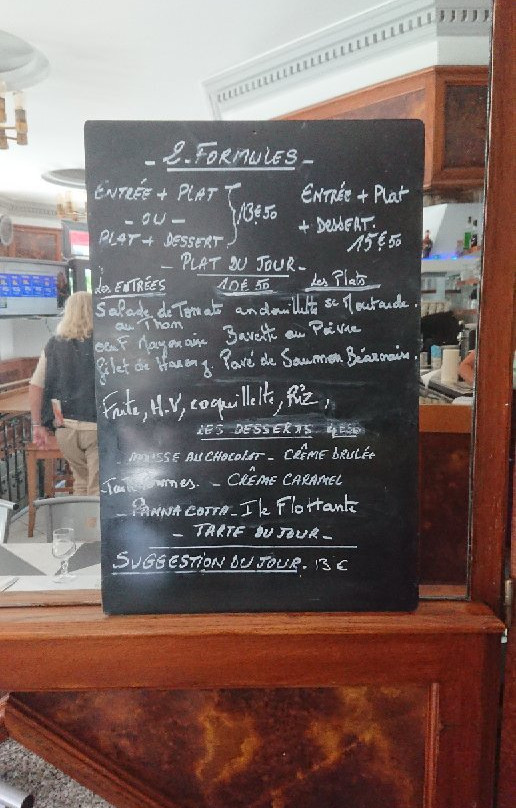 - 2. FORMULES -
ENTRÉE + PLAT
- OU -
PLAT + DESSERT
13€50
ENTRÉE + Plat
+ DESSERT.
15€50
- PLAT DU JOUR -
10€50
Les ENTRÉES
Les Plats
Salade de Tomate andouillette Sc Moutarde.
au Thon
oeuf Mayonnaise Bavette au Poivre
filet de Hareng Pavé de Saumon Béarnaise.
Frite, H.V, coquillette, Riz,
LES DESSERTS 4€50
- MOUSSE AU CHOCOLAT - CRÊME BRULÉE
- CRÊME CARAMEL
- PANNA COTTA - Ile Flottante
- TARTE DU JOUR -
SUGGESTION DU JOUR. 13 €